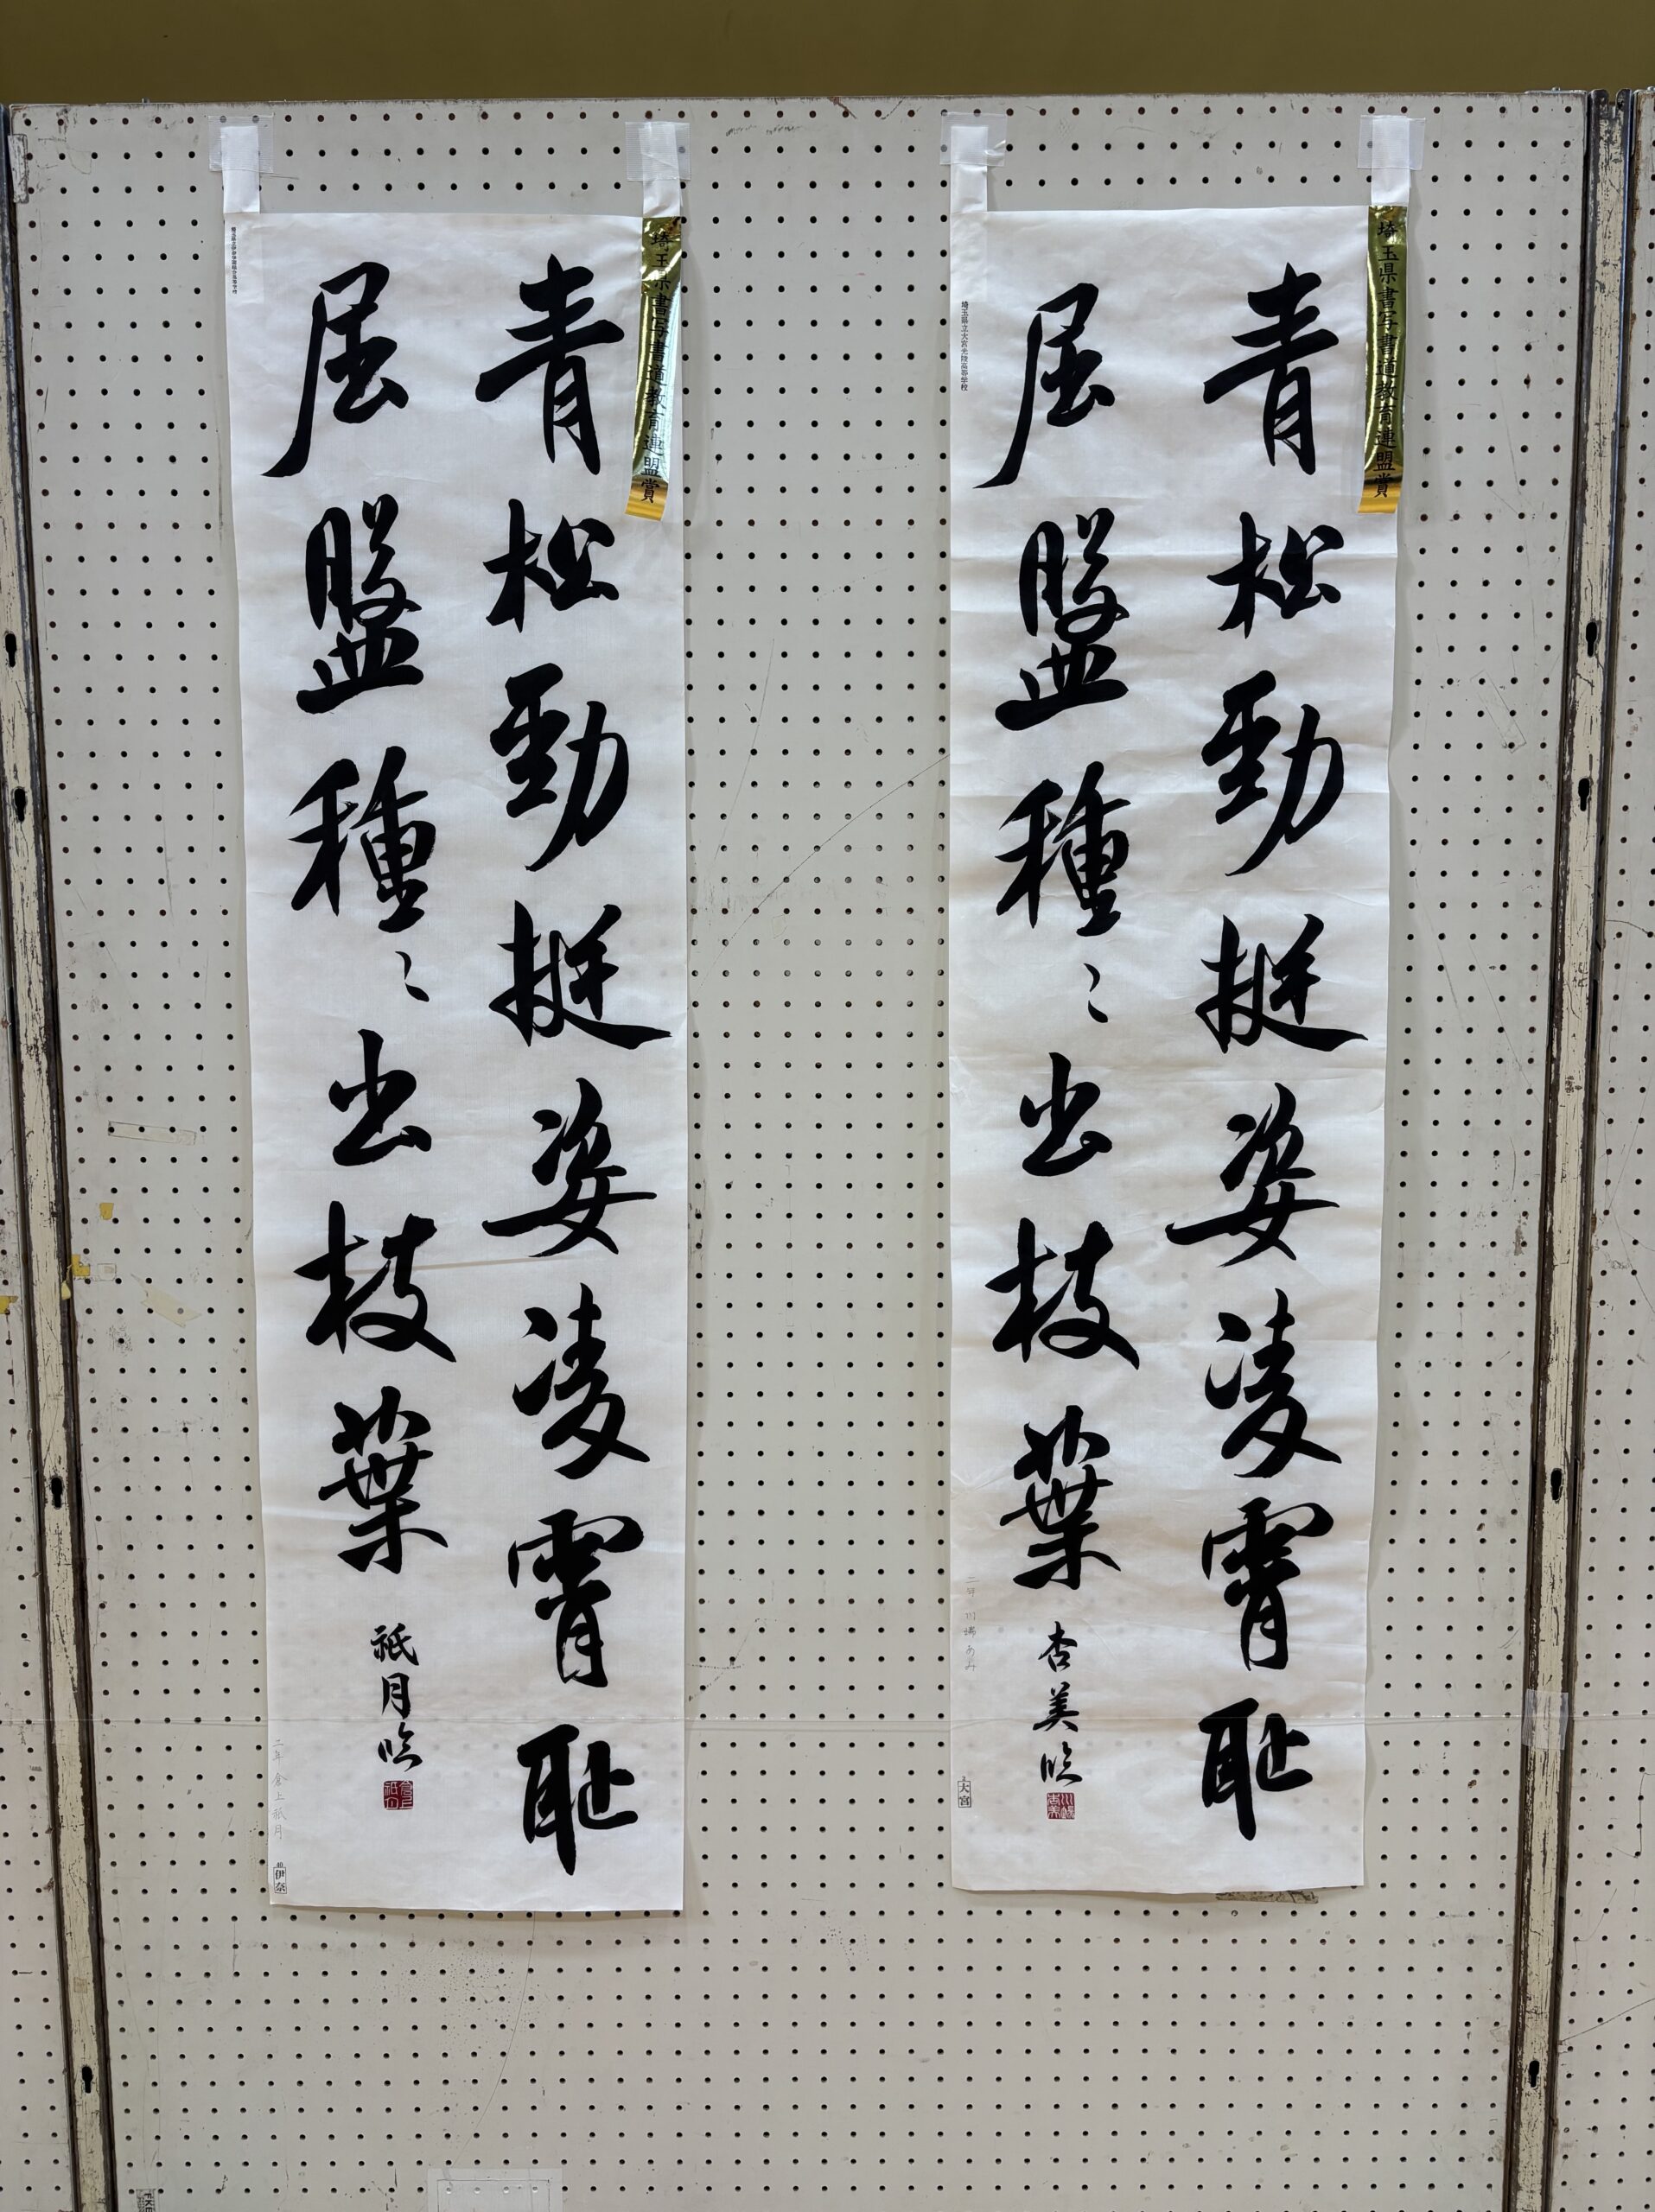 埼玉県書写書道教育連盟賞
青松勁挺姿凌霄恥
屈盤種〻出枝葉
杏美臨
埼玉県立大宮光陵高等学校
大宮
埼玉県書写書道教育連盟賞
青松勁挺姿凌霄恥
屈盤種〻出枝葉
祇月臨
伊奈